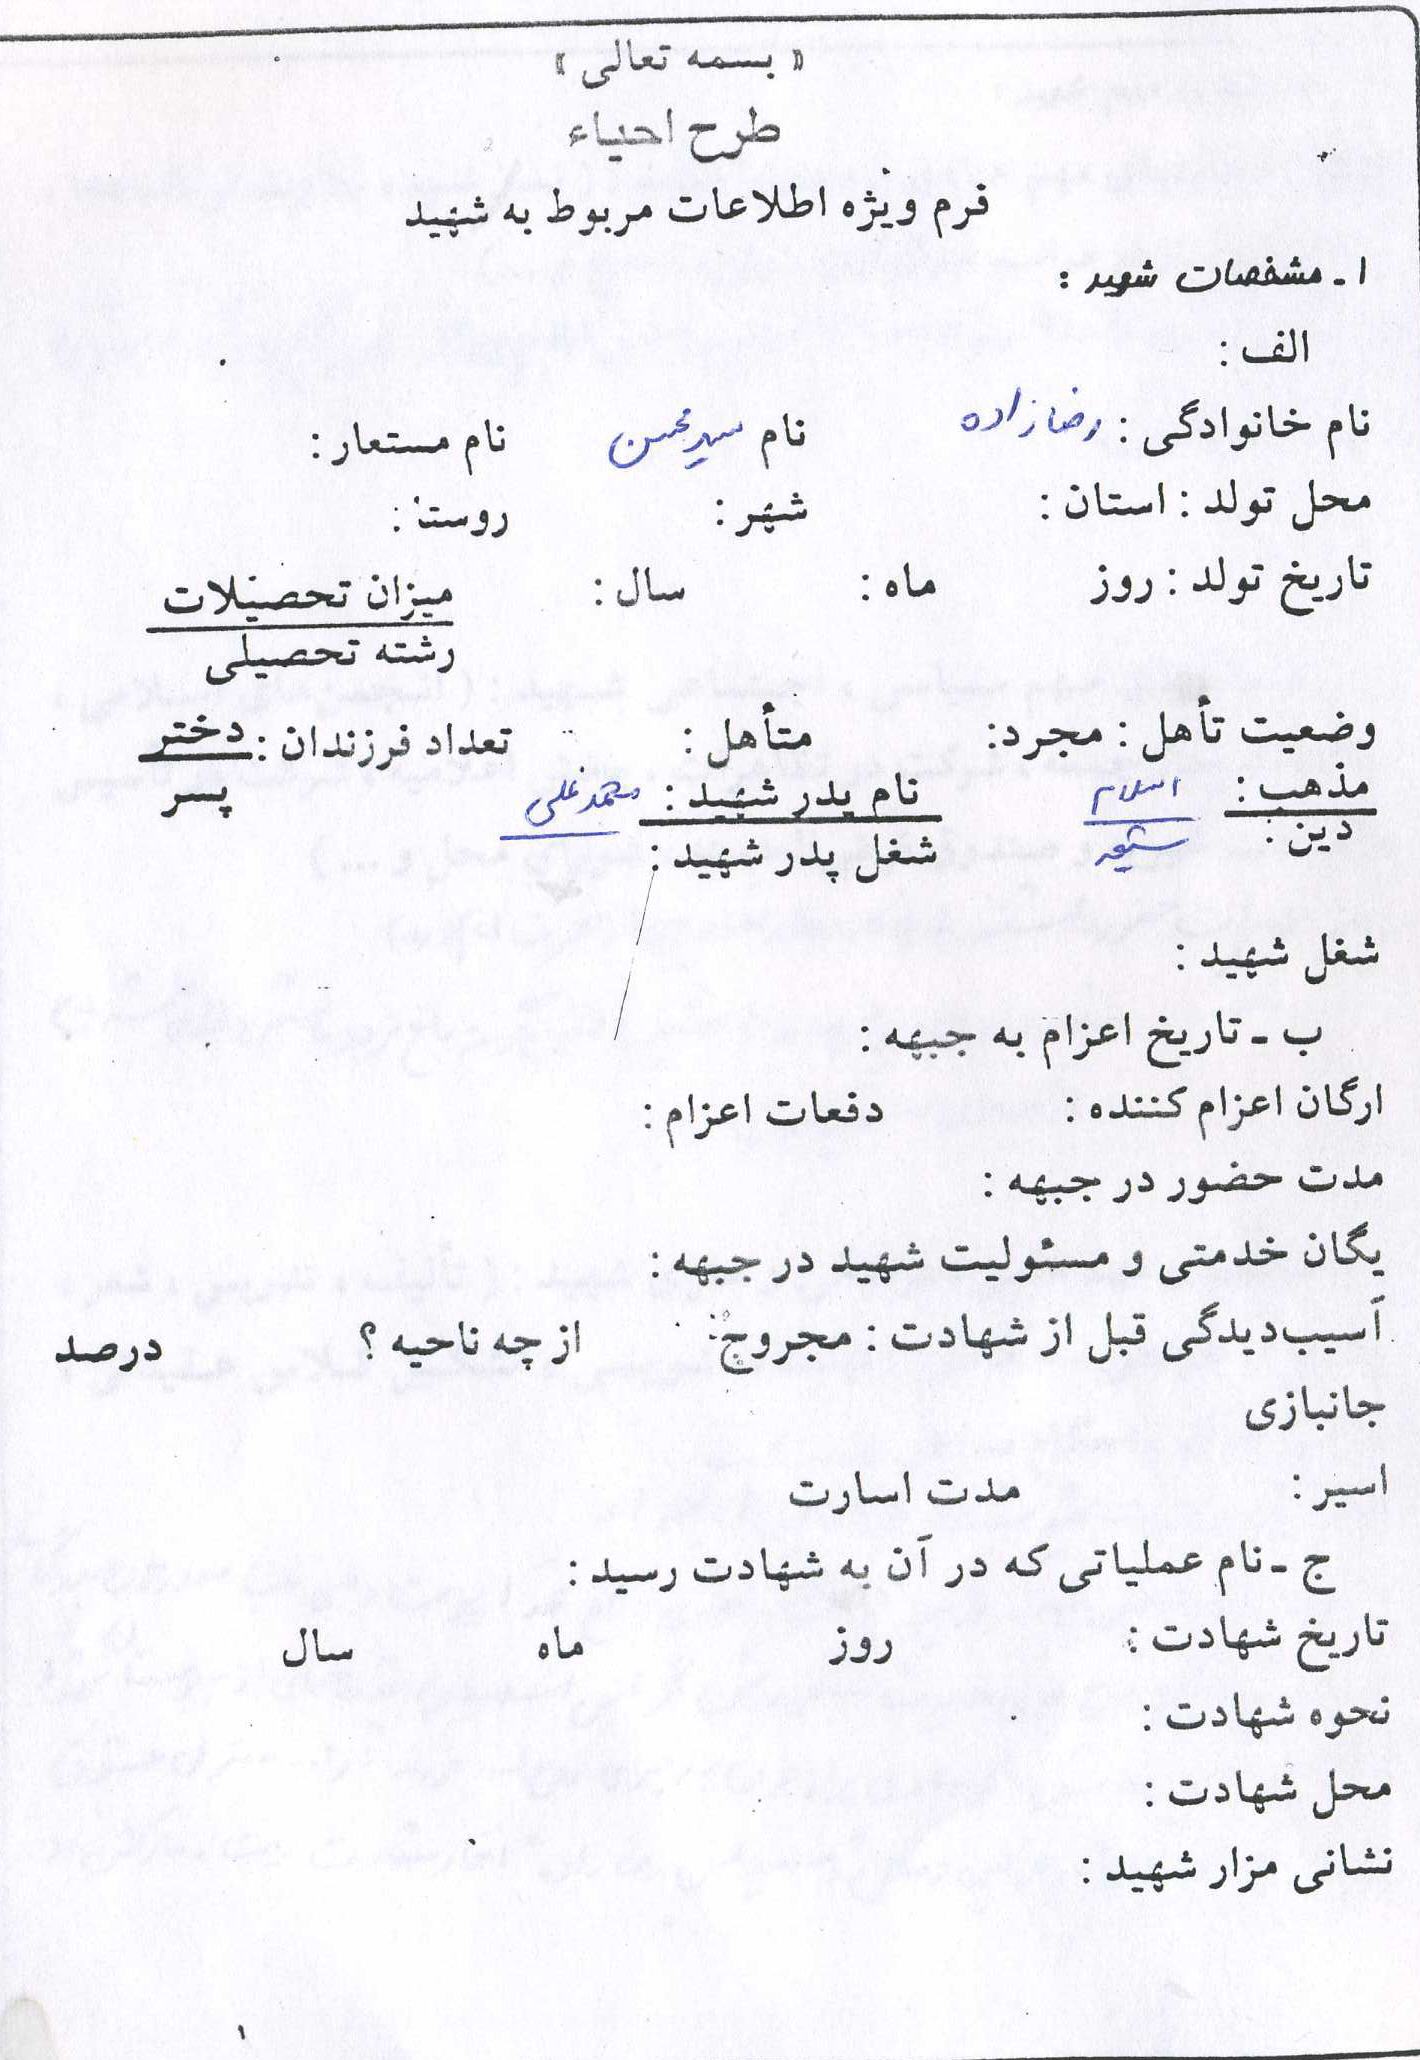 « بسمه تعالی »
طرح احیاء
فرم ویژه اطلاعات مربوط به شهید
۱ ـ مشخصات شهید :
الف :
نام خانوادگی : رضازاده نام سیدمحسن نام مستعار :
محل تولد : استان : شهر : روستا :
تاریخ تولد : روز ماه : سال : میزان تحصیلات
رشته تحصیلی
وضعیت تأهل : مجرد: متأهل : تعداد فرزندان : دختر
پسر
مذهب : اسلام نام پدر شهید : محمدعلی
دین : شیعه شغل پدر شهید :
شغل شهید :
ب ـ تاریخ اعزام به جبهه :
ارگان اعزام کننده : دفعات اعزام :
مدت حضور در جبهه :
یگان خدمتی و مسئولیت شهید در جبهه :
آسیب‌دیدگی قبل از شهادت : مجروح : از چه ناحیه ؟ درصد
جانبازی
اسیر : مدت اسارت
ج ـ نام عملیاتی که در آن به شهادت رسید :
تاریخ شهادت : روز ماه سال
نحوه شهادت :
محل شهادت :
نشانی مزار شهید :
۱